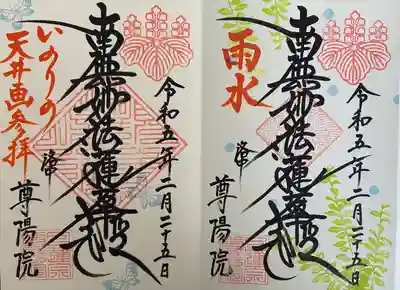 令和五年二月二十五日
南無妙法蓮華経
いのりの
天井画参拝
尊陽院
令和五年二月二十五日
南無妙法蓮華経
雨水
尊陽院